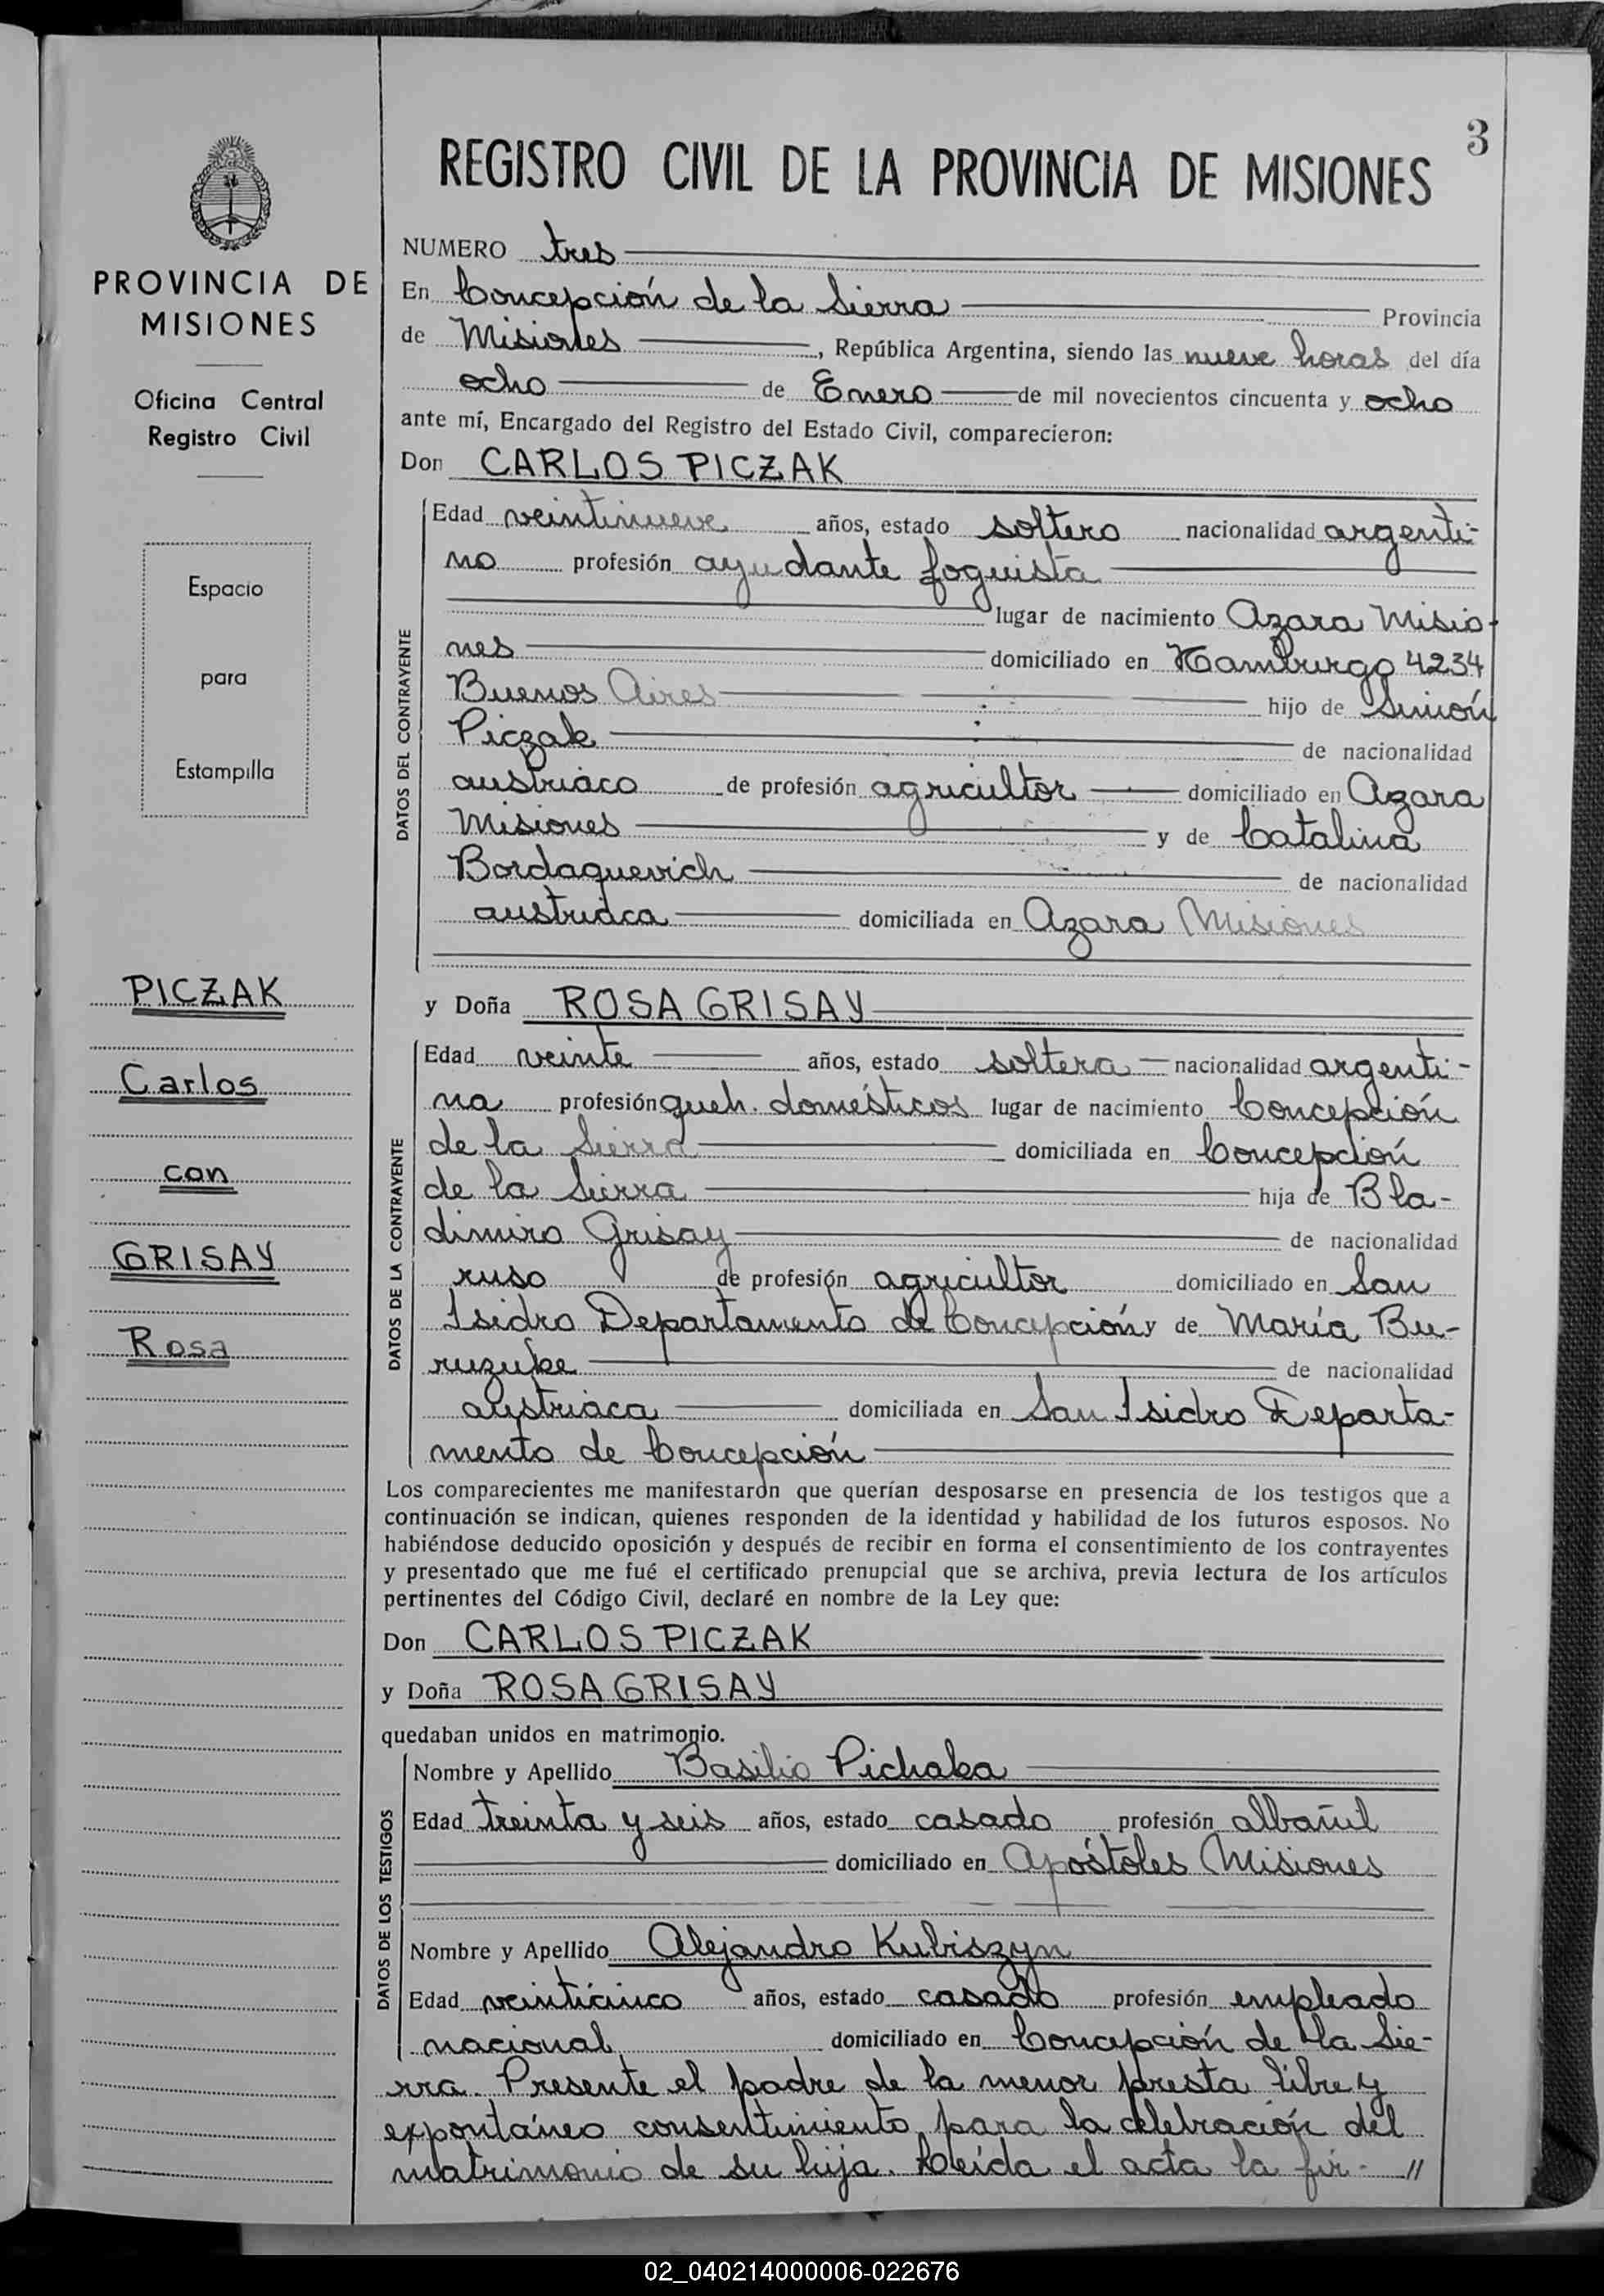 3
REGISTRO CIVIL DE LA PROVINCIA DE MISIONES
PROVINCIA DE
MISIONES
Oficina Central
Registro Civil
Espacio
para
Estampilla
PICZAK
Carlos
con
GRISAY
Rosa
NUMERO tres
En Concepción de la Sierra Provincia
de Misiones, República Argentina, siendo las nueve horas del día
ocho de Enero de mil novecientos cincuenta y ocho
ante mí, Encargado del Registro del Estado Civil, comparecieron:
Don CARLOS PICZAK
DATOS DEL CONTRAYENTE
Edad veintinueve años, estado soltero nacionalidad argenti-
no profesión ayudante foguista
lugar de nacimiento Azara Misio-
nes domiciliado en Hamburgo 4234
Buenos Aires hijo de Simón
Piczak de nacionalidad
austríaco de profesión agricultor domiciliado en Azara
Misiones y de Catalina
Bordaquevich de nacionalidad
austríaca domiciliada en Azara Misiones
y Doña ROSA GRISAY
DATOS DE LA CONTRAYENTE
Edad veinte años, estado soltera nacionalidad argenti-
na profesión queh. domésticos lugar de nacimiento Concepción
de la Sierra domiciliada en Concepción
de la Sierra hija de Bla-
dimiro Grisay de nacionalidad
ruso de profesión agricultor domiciliado en San
Isidro Departamento de Concepción y de María Bu-
ruzuke de nacionalidad
austríaca domiciliada en San Isidro Departa-
mento de Concepción
Los comparecientes me manifestaron que querían desposarse en presencia de los testigos que a
continuación se indican, quienes responden de la identidad y habilidad de los futuros esposos. No
habiéndose deducido oposición y después de recibir en forma el consentimiento de los contrayentes
y presentado que me fué el certificado prenupcial que se archiva, previa lectura de los artículos
pertinentes del Código Civil, declaré en nombre de la Ley que:
Don CARLOS PICZAK
y Doña ROSA GRISAY
quedaban unidos en matrimonio.
DATOS DE LOS TESTIGOS
Nombre y Apellido Basilio Pichaka
Edad treinta y seis años, estado casado profesión albañil
domiciliado en Apóstoles Misiones
Nombre y Apellido Alejandro Kubiszyn
Edad veinticinco años, estado casado profesión empleado
nacional domiciliado en Concepción de la Sie-
rra. Presente el padre de la menor presta libre y
expontáneo consentimiento para la celebración del
matrimonio de su hija. Leída el acta la fir- //
02_040214000006-022676